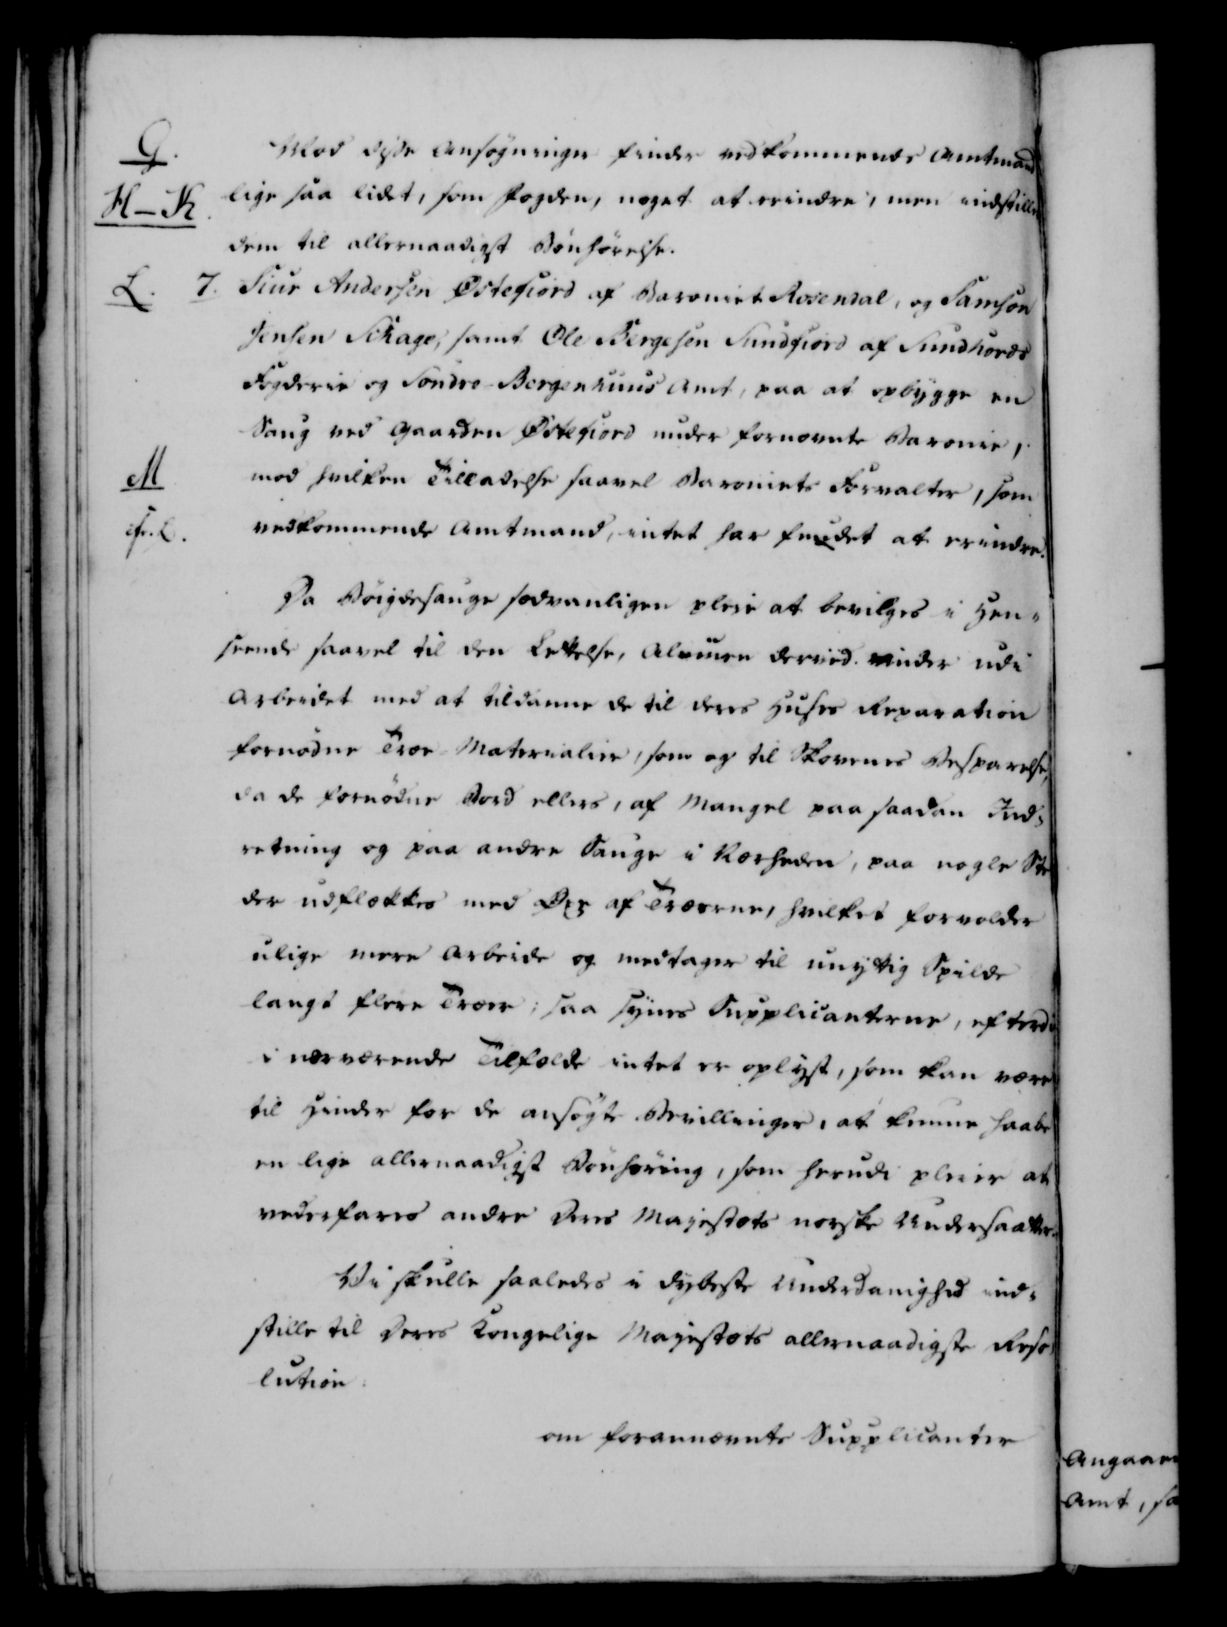 G. Mod disse Ansøgninger finder vedkommende Amtmand
H-K. lige saa lidet, som Fogden, noget at erindre, men indstiller
dem til allernaadigst Bønhørelse.
L. 7. Siur Andersen Østefiord af Baroniet Rosendal, og Samson
Jensen Schage, samt Ole Bergesen Sundfiord af Sundhords
Fogderie og Søndre-Bergenhuus Amt, paa at opbygge en
Saug ved Gaarden Østefiord under fornevnte Baronie,
M mod hvilken Tilladelse saavel Baroniets Forvalter, som
cfr. L. vedkommende Amtmand, intet har fundet at erindre.
Da Bøigdesauge sædvanligen pleie at bevilges i Hen-
seende saavel til den Lettelse, Almuen derved vinder udi
Arbeidet med at tildanne de til deres Huses Reparation
fornødne Træe-Materialier, som og til Skovenes Besparelse,
da de fornødne Bord ellers, af Mangel paa saadan Ind-
retning og paa andre Sauge i Nærheden, paa nogle Ste-
der udflækkes med Øxe af Træerne, hvilket forvolder
ulige mere Arbeide og medtager til unyttig Spilde
langt flere Træer; saa synes Supplicanterne, efterdi
i nærværende Tilfælde intet er oplyst, som kan være
til Hinder for de ansøgte Bevillinger, at kunne haabe
en lige allernaadigst Bønhøring, som herudi pleier at
vederfares andre Deres Majestæts norske Undersaatter.
Vi skulle saaledes i dybeste Underdanighed ind-
stille til Deres Kongelige Majestæts allernaadigste Reso-
lution:
om forannævnte Supplicanter
Angaaen
Amt, sa